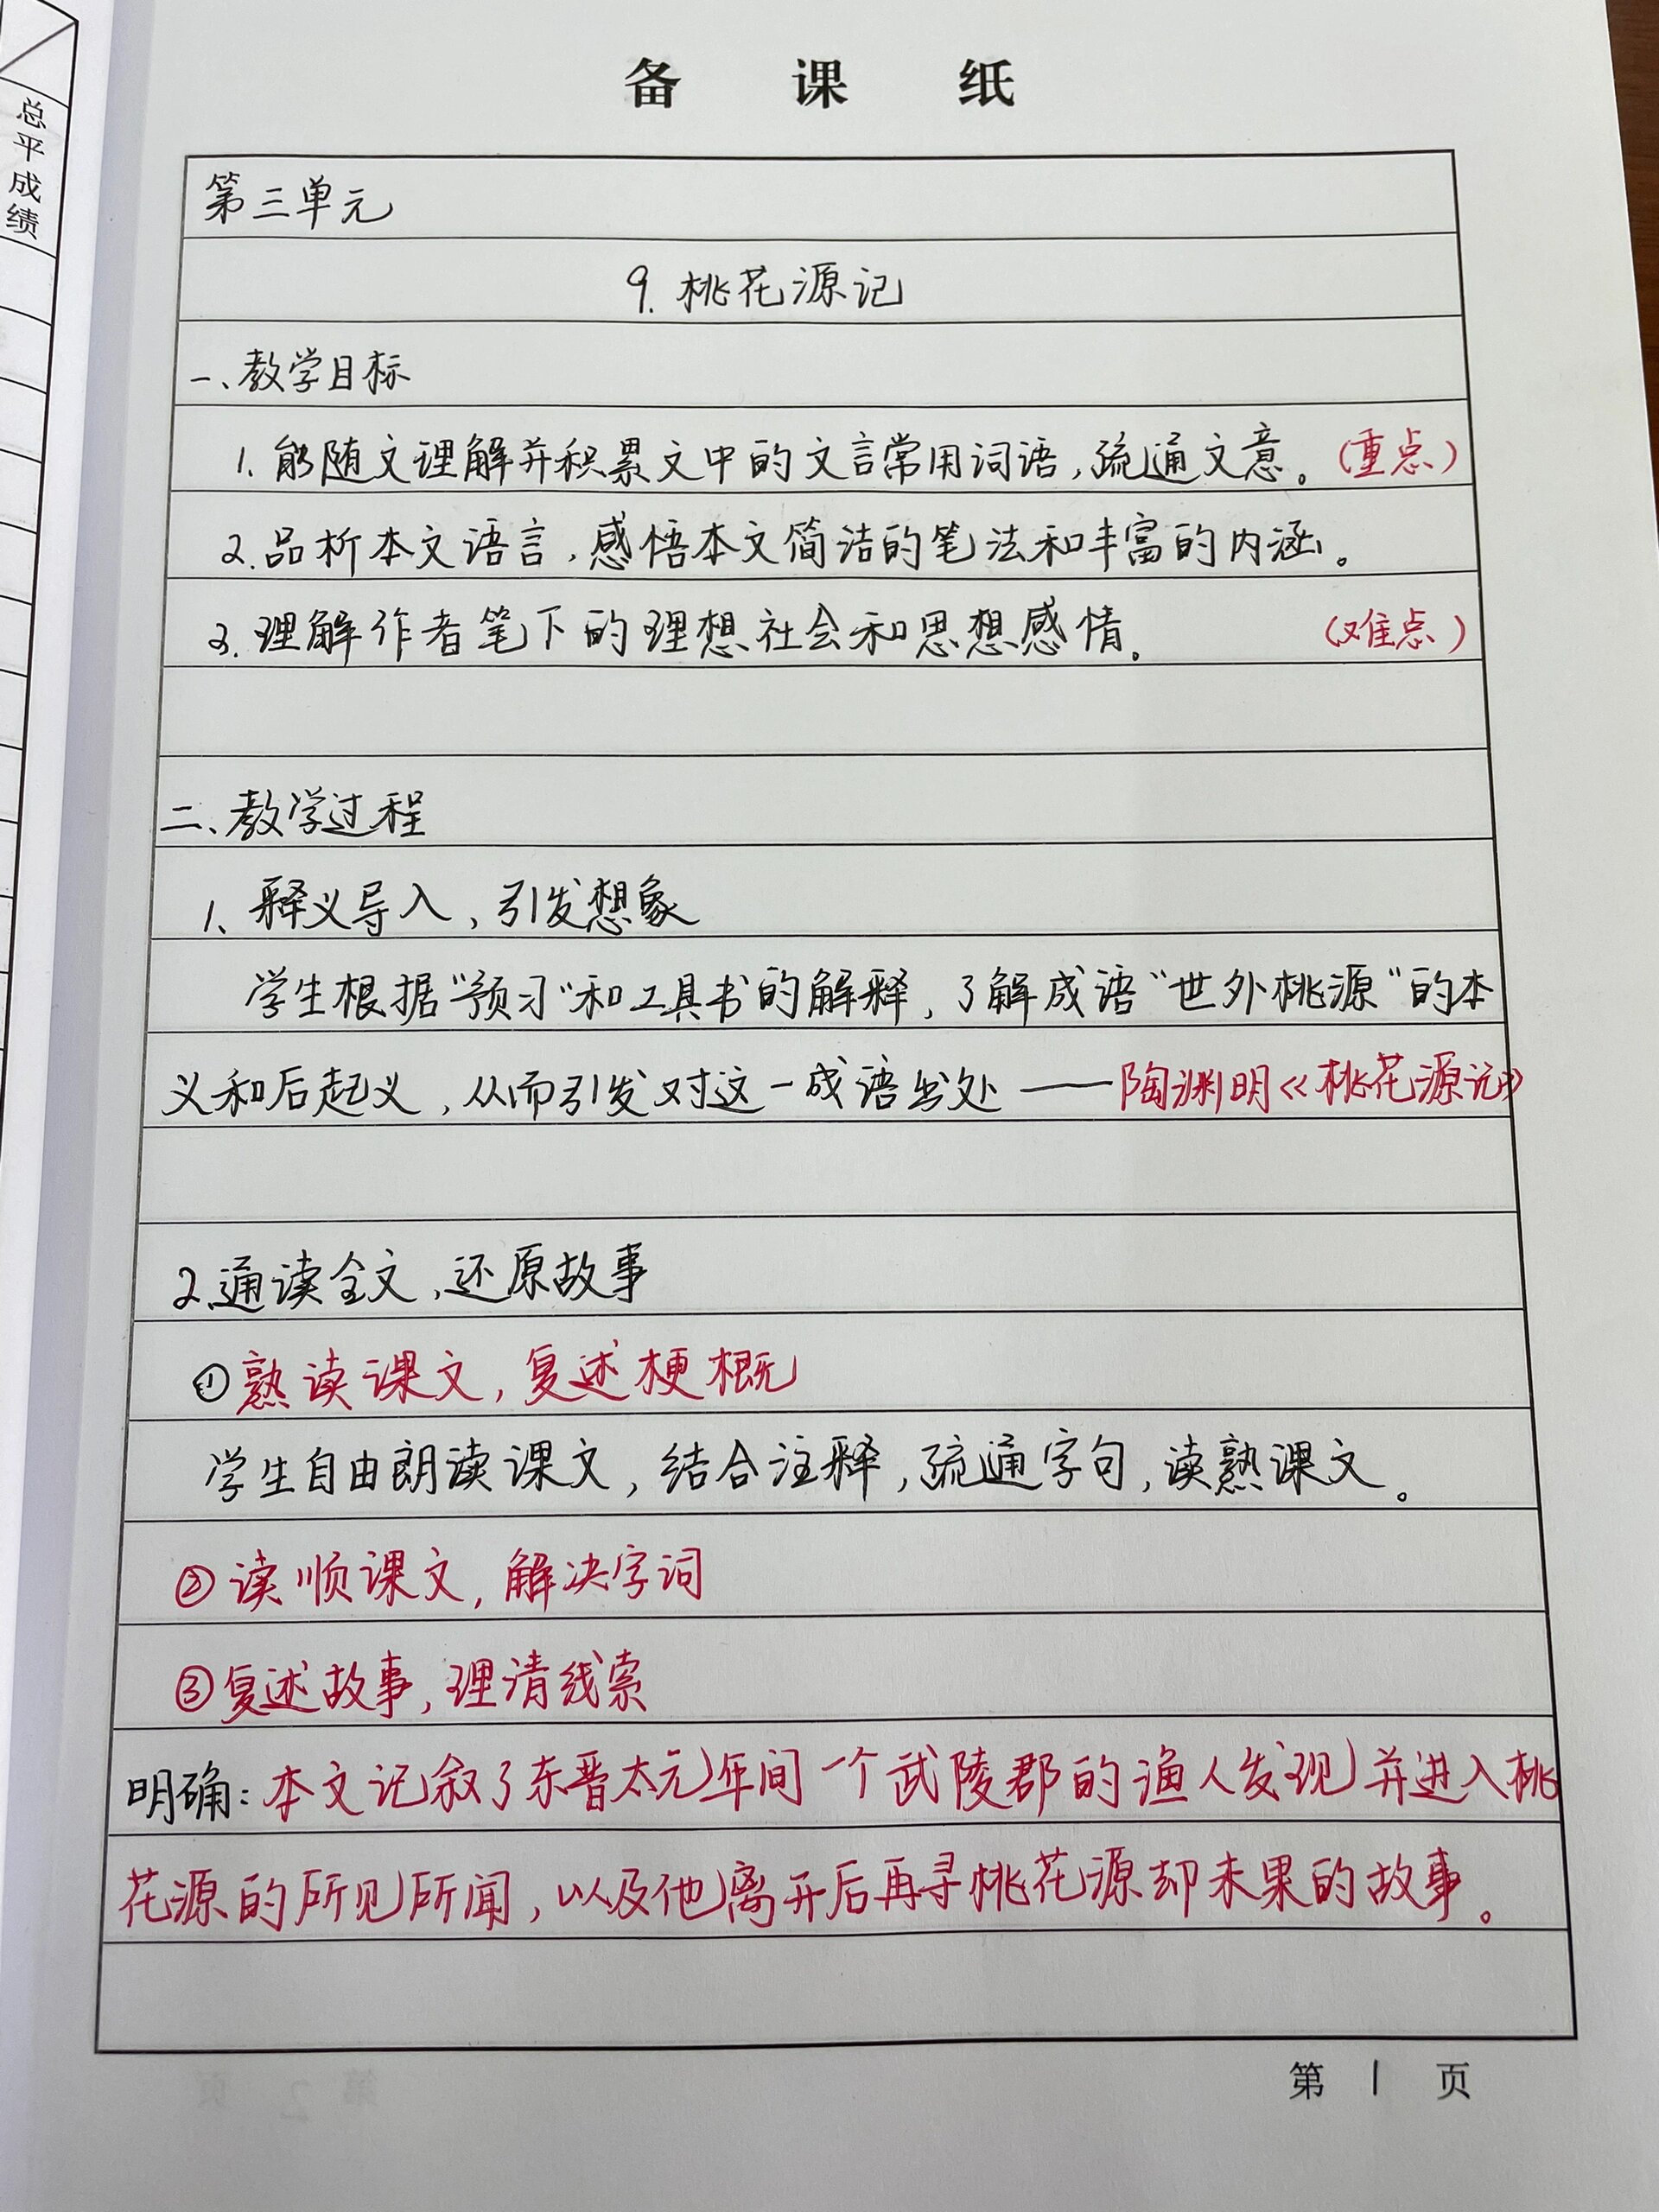 总平成绩
备课纸
第三单元
9.桃花源记
一、教学目标
1.能随文理解并积累文中的文言常用词语，疏通文意。（重点）
2.品析本文语言，感悟本文简洁的笔法和丰富的内涵。
3.理解作者笔下的理想社会和思想感情。（难点）
二、教学过程
1、释义导入，引发想象
学生根据“预习”和工具书的解释，了解成语“世外桃源”的本
义和后起义，从而引发对这一成语出处——陶渊明《桃花源记》
2.通读全文，还原故事
①熟读课文，复述梗概
学生自由朗读课文，结合注释，疏通字句，读熟课文。
②读顺课文，解决字词
③复述故事，理清线索
明确：本文记叙了东晋太元年间一个武陵郡的渔人发现并进入桃
花源的所见所闻，以及他离开后再寻桃花源却未果的故事。
第1页
第2页